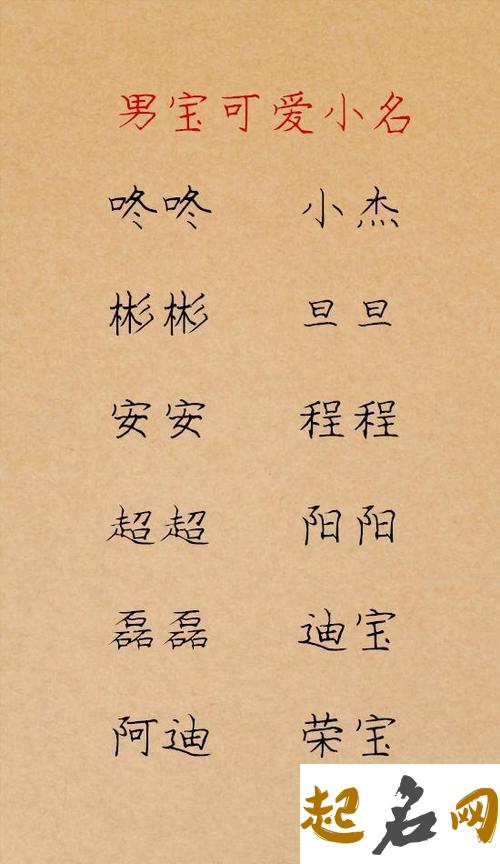 男宝可爱小名
咚咚 小杰
彬彬 旦旦
安安 程程
超超 阳阳
磊磊 迪宝
阿迪 荣宝
起名网